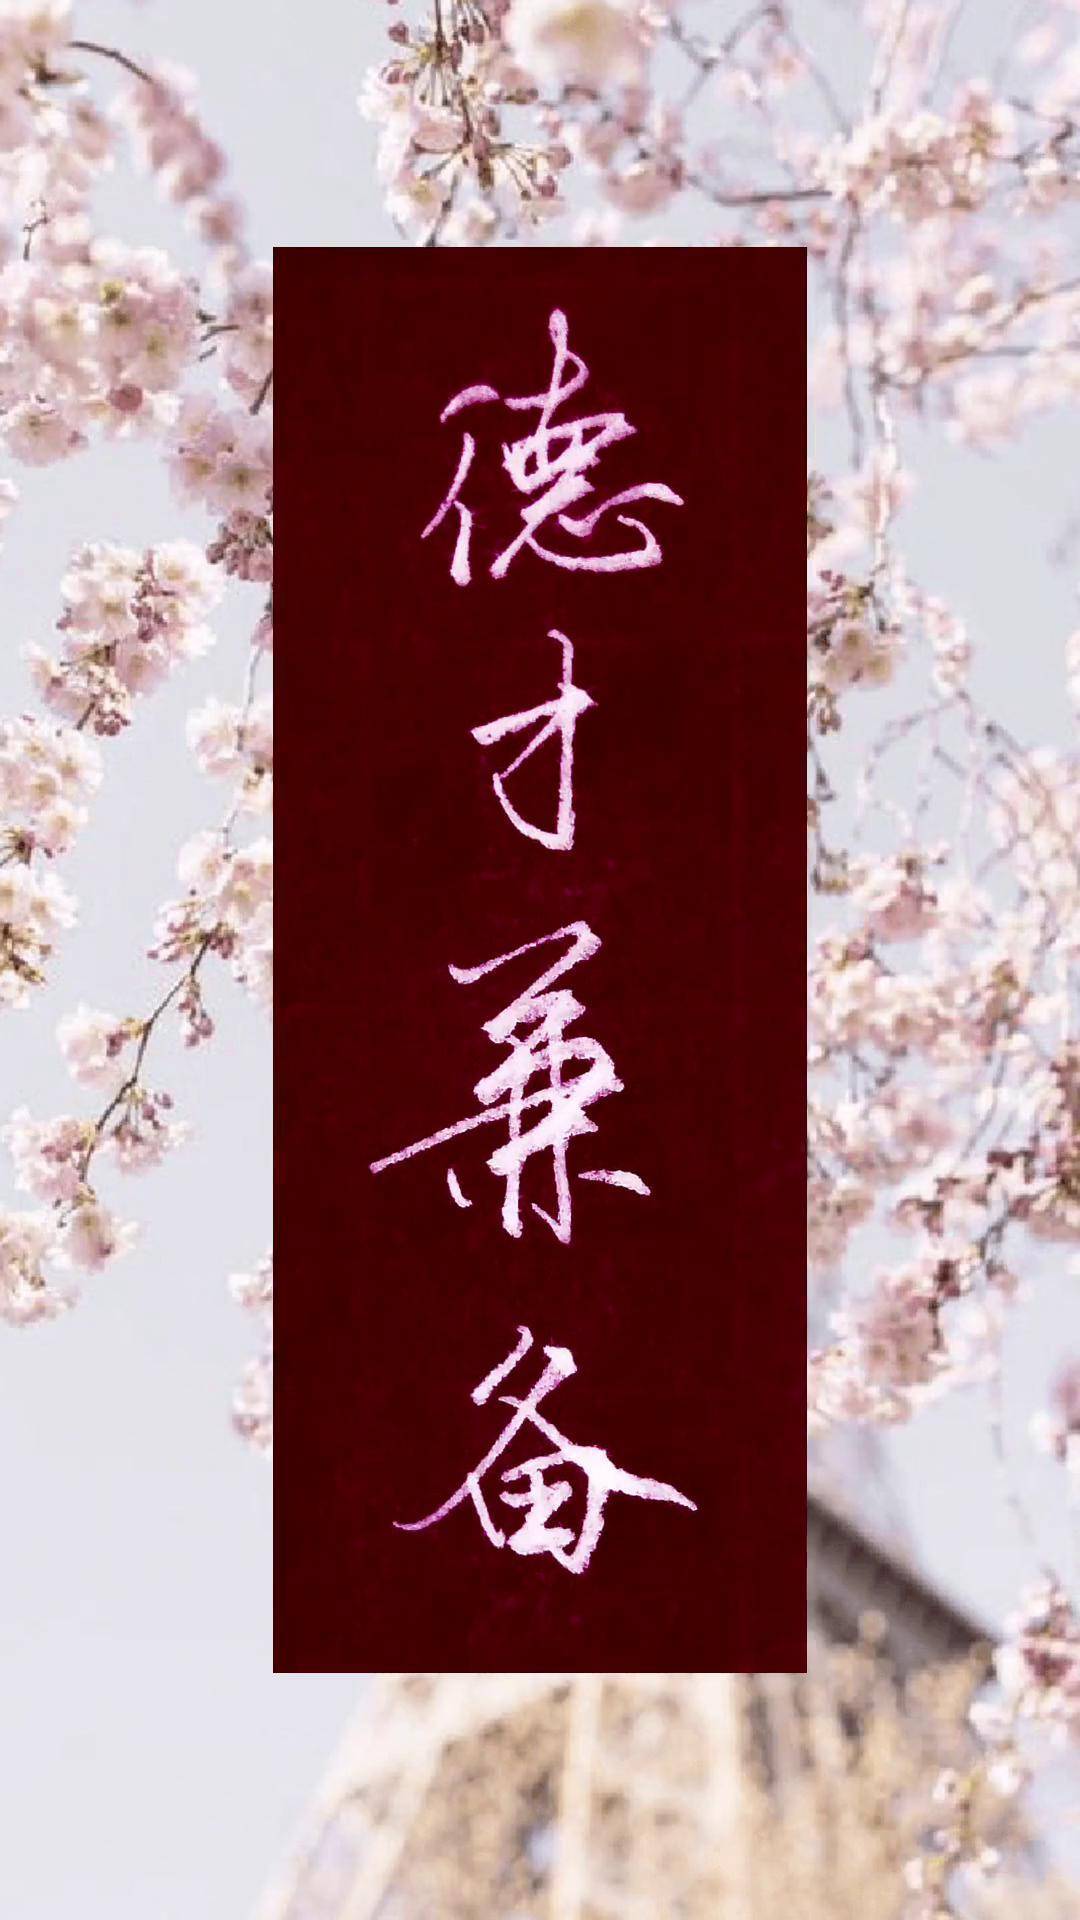 德才兼备